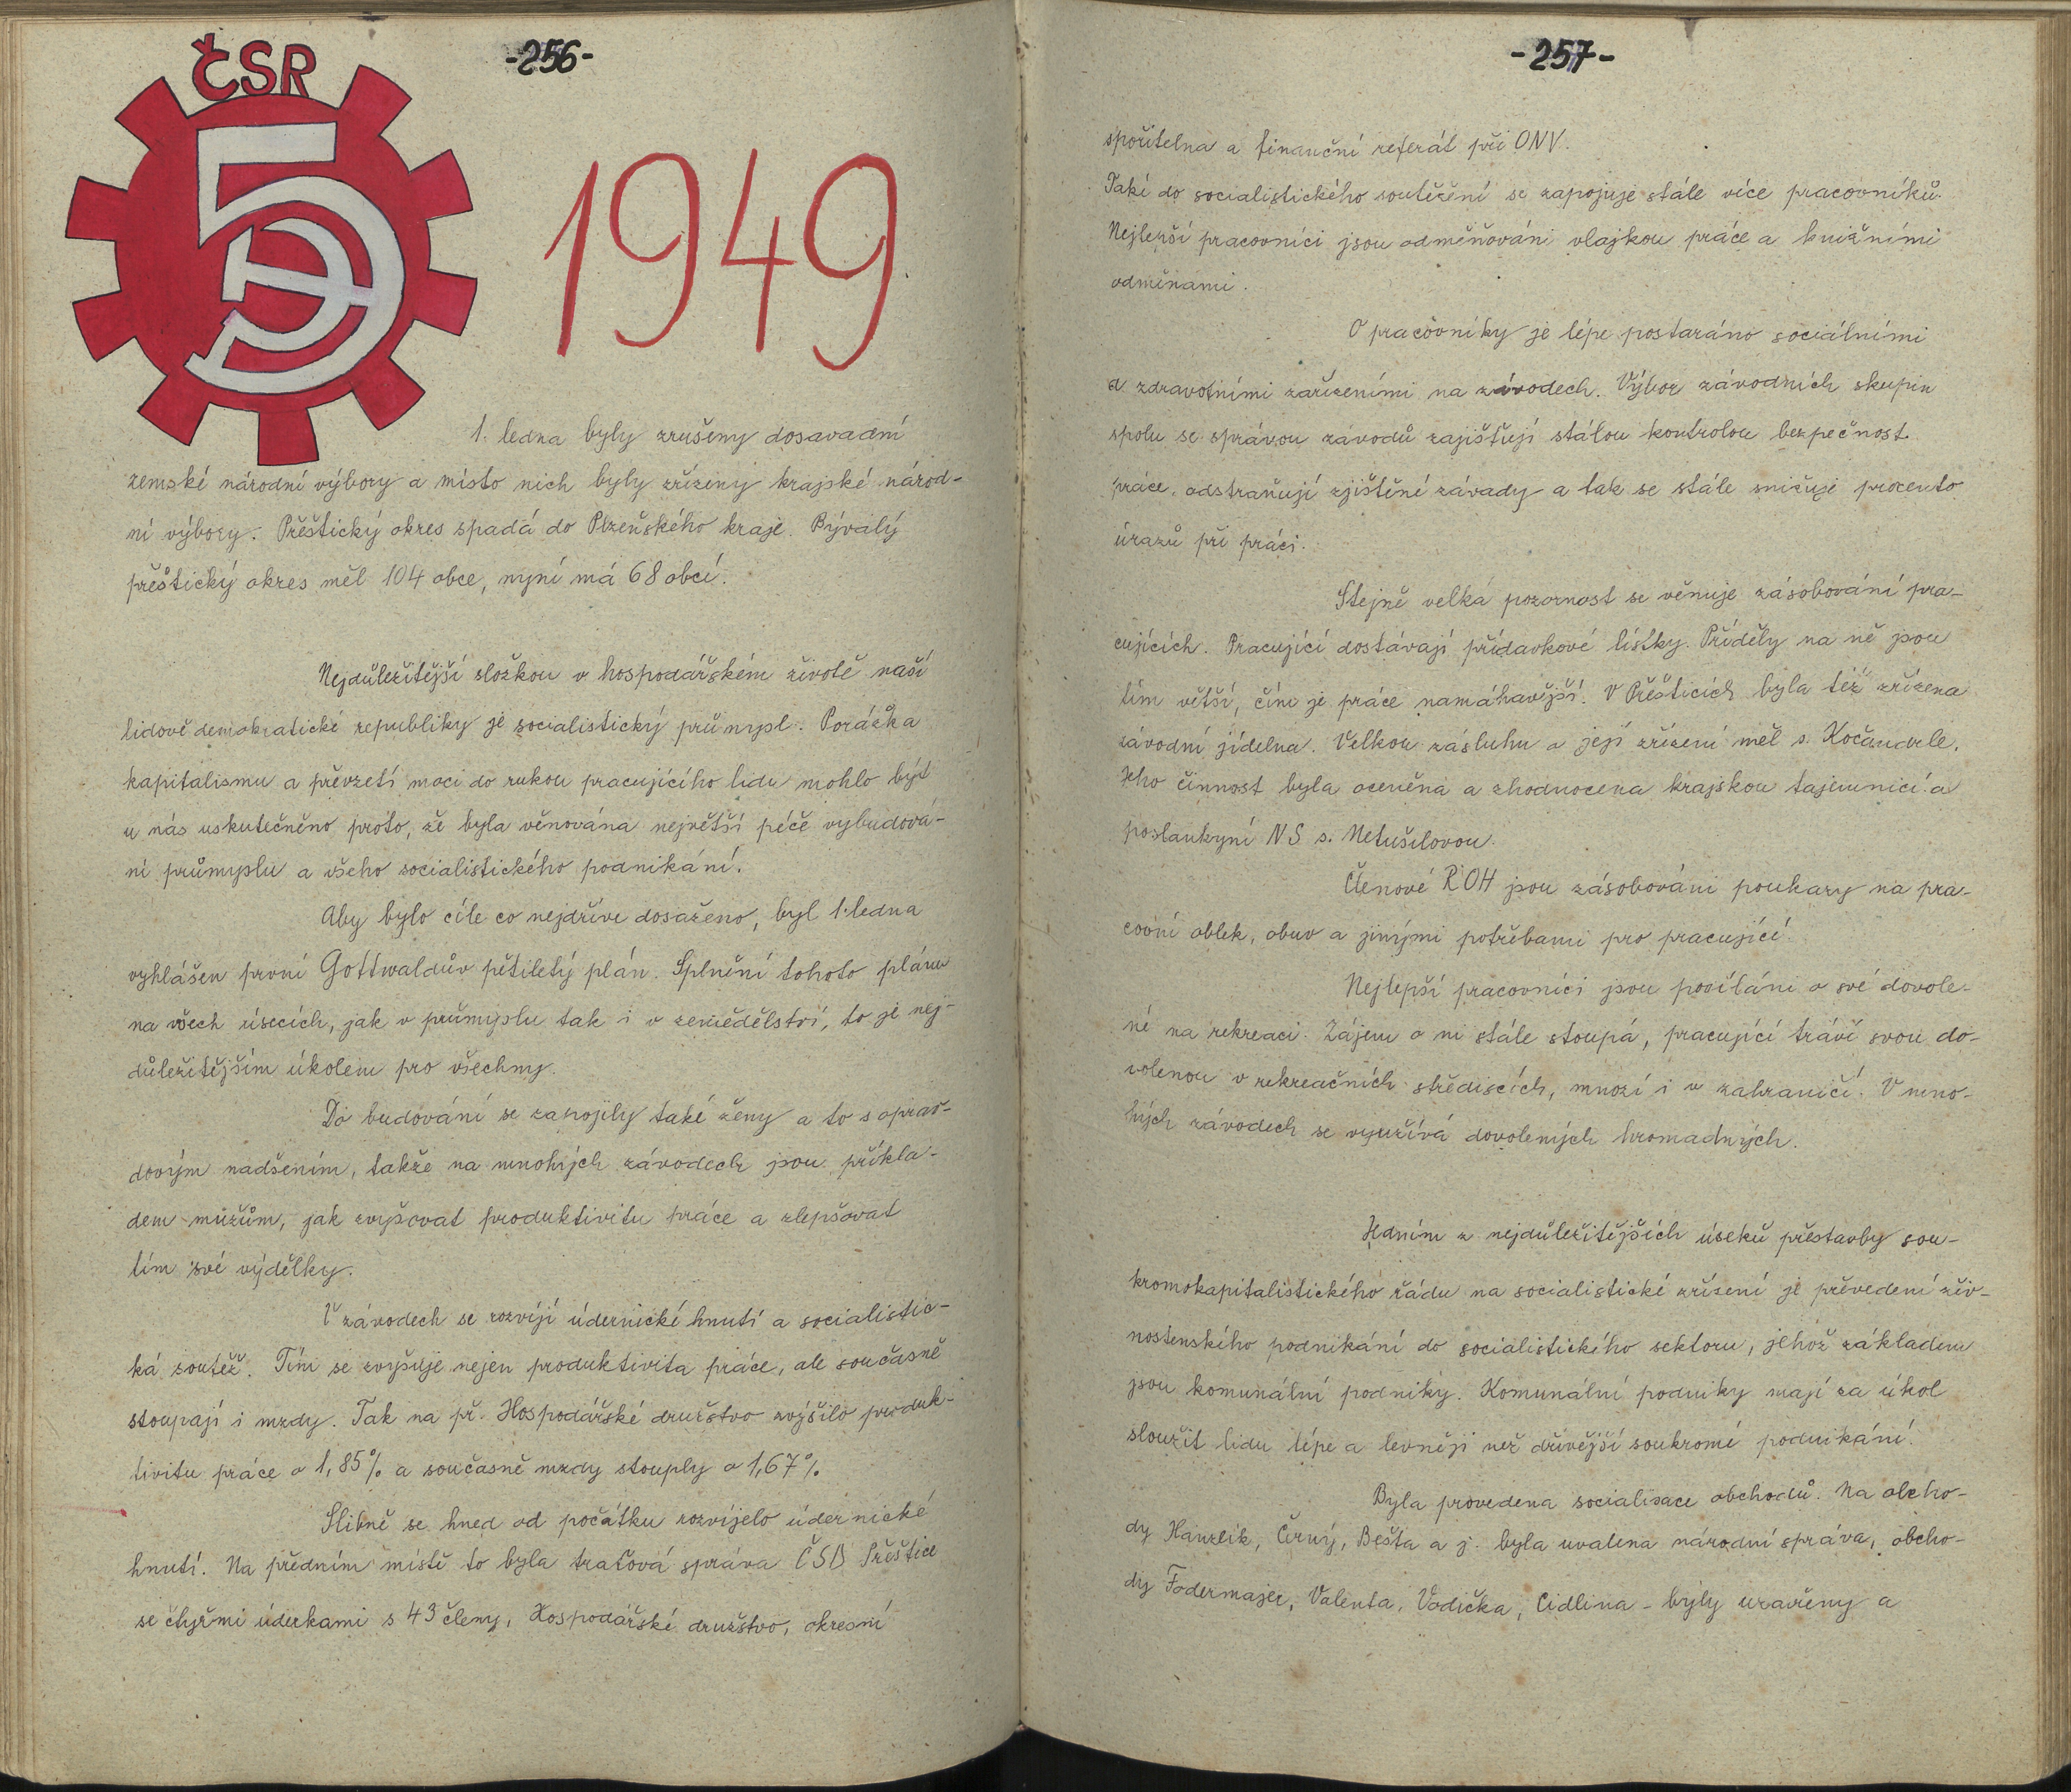 ČSR
-256-
5
1949
1. ledna byly zrušeny dosavadní
zemské národní výbory a místo nich byly zřízeny krajské národ-
ní výbory. Přeštický okres spadá do Plzeňského kraje. Bývalý
přeštický okres měl 104 obce, nyní má 68 obcí.
Nejdůležitější složkou v hospodářském životě naší
lidově demokratické republiky je socialistický průmysl. Porážka
kapitalismu a převzetí moci do rukou pracujícího lidu mohlo být
u nás uskutečněno proto, že byla věnována největší péče vybudová-
ní průmyslu a všeho socialistického podnikání.
Aby bylo cíle co nejdříve dosaženo, byl 1. ledna
vyhlášen první Gottwaldův pětiletý plán. Splnění tohoto plánu
na všech úsecích, jak v průmyslu tak i v zemědělství, to je nej-
důležitějším úkolem pro všechny.
Do budování se zapojily také ženy a to s oprav-
dovým nadšením, takže na mnohých závodech jsou příkla-
dem mužům, jak zvyšovat produktivitu práce a zlepšovat
tím své výdělky.
V závodech se rozvíjí údernické hnutí a socialistic-
ká soutěž. Tím se zvyšuje nejen produktivita práce, ale současně
stoupají i mzdy. Tak na př. Hospodářské družstvo zvýšilo produk-
tivitu práce o 1,85% a současně mzdy stouply o 1,67%.
Slibně se hned od počátku rozvíjelo údernické
hnutí. Na předním místě to byla traťová správa ČSD Přeštice
se čtyřmi úderkami s 43 členy, Hospodářské družstvo, okresní
-257-
spořitelna a finanční referát při ONV.
Také do socialistického soutěžení se zapojuje stále více pracovníků.
Nejlepší pracovníci jsou odměňováni vlajkou práce a knižními
odměnami.
O pracovníky je lépe postaráno sociálními
a zdravotními zařízeními na závodech. Výbor závodních skupin
spolu se správou závodů zajišťují stálou kontrolou bezpečnost
práce, odstraňují zjištěné závady a tak se stále snižuje procento
úrazů při práci.
Stejně velká pozornost se věnuje zásobování pra-
cujících. Pracující dostávají přídavkové lístky. Příděly na ně jsou
tím větší, čím je práce namáhavější. V Přešticích byla též zřízena
závodní jídelna. Velkou zásluhu o její zřízení měl s. Kočandrle.
Jeho činnost byla oceněna a zhodnocena krajskou tajemnicí a
poslankyní NS s. Netušilovou.
Členové ROH jsou zásobováni poukazy na pra-
covní oblek, obuv a jinými potřebami pro pracující.
Nejlepší pracovníci jsou posíláni o své dovole-
né na rekreaci. Zájem o ni stále stoupá, pracující tráví svou do-
volenou v rekreačních střediscích, mnozí i v zahraničí. V mno-
hých závodech se využívá dovolených hromadných.
Jedním z nejdůležitějších úseků přestavby sou-
kromokapitalistického řádu na socialistické zřízení je převedení živ-
nostenského podnikání do socialistického sektoru, jehož základem
jsou komunální podniky. Komunální podniky mají za úkol
sloužit lidu lépe a levněji než dřívější soukromé podnikání.
Byla provedena socialisace obchodů. Na obcho-
dy Hanzlík, Černý, Bešta a j. byla uvalena národní správa, obcho-
dy Fodermajer, Valenta, Vodička, Cidlina - byly uzavřeny a